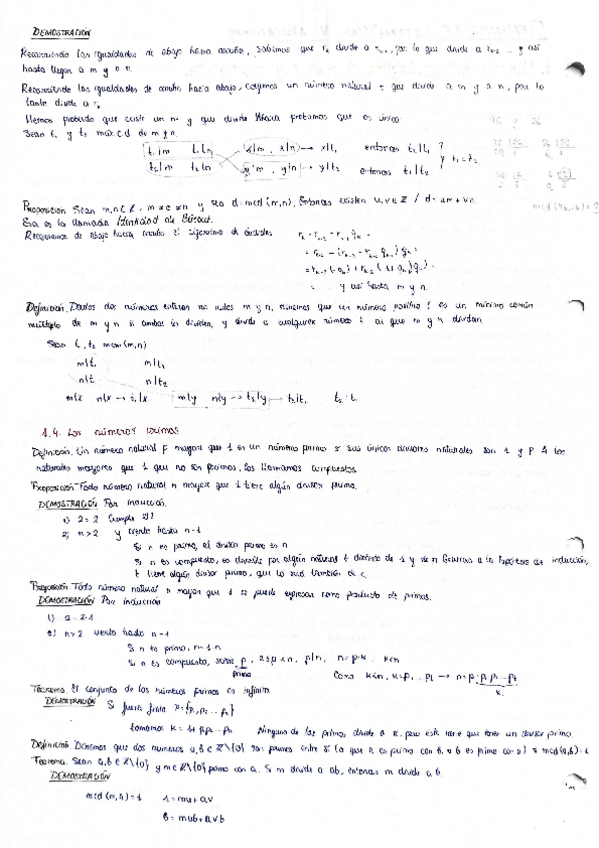 DEMOSTRACIÓN
Recorriendo las igualdades de abajo hacia arriba, sabemos que rₖ divide a rₖ₋₁, por lo que divide a rₖ₋₂ ... y así
hasta llegar a m y n.
Recorriendo las igualdades de arriba hacia abajo, cogemos un número natural t que divida a m y a n, por lo
tanto divide a r,
Hemos probado que existe un nº y que divide. Ahora probamos que es único:
Sean t₁ y t₂ máx c.d de m y n.
t₁|m t₁|n x|m, x|n → x|t₁ entonces t₂|t₁ ?
t₂|m t₂|n y|m, y|n → y|t₂ entonces t₁|t₂ y t₁=t₂
Proposición Sean m,n ∈ Z, y sea d=mcd(m,n). Entonces existen u,v ∈ Z / d = um + vn.
Esa es la llamada Identidad de Bézout.
Recorremos de abajo hacia arriba el algoritmo de Euclides
y así hasta m y n.
Definición. Dados dos números enteros no nulos m y n, diremos que un número positivo t es un mínimo común
múltiplo de m y n si ambos lo dividen, y divide a cualquier número al que m y n dividan.
Sean t₁, t₂ mcm(m,n)
m|t₁ m|t₂
n|t₁ n|t₂
m|x n|x → t₁|x m|y n|y → t₂|y → t₂|t₁
1.4. Los números primos
Definición. Un número natural p mayor que 1 es un número primo si sus únicos divisores naturales son 1 y p. A los
naturales mayores que 1 que no son primos, los llamamos compuestos.
Proposición Todo número natural n mayor que 1 tiene algún divisor primo.
DEMOSTRACIÓN Por inducción.
1) 2=2 Cumple
2) n>2 y cierto hasta n-1
Si n es primo, el divisor primo es n
Si n es compuesto, es divisible por algún natural t distinto de 1 y de n. Gracias a la hipótesis de inducción,
t tiene algún divisor primo, que lo será también de
Proposición Todo número natural n mayor que 1 se puede expresar como producto de primos.
DEMOSTRACIÓN Por inducción
1) 2=2·1
2) n>2 cierto hasta n-1
Si n es primo, n=1·n
Si n es compuesto, existe p, 2≤p<n, p|n, n=p·k, k<n
primo Como k<n, k=p₁...pₜ → n=p·p₁·p₂...pₜ
k
Teorema. El conjunto de los números primos es infinito.
DEMOSTRACIÓN Si fuera finito P={p₁,p₂...pₜ}
tomamos k=1+p₁p₂...pₜ Ninguno de los primos divide a k, pero este tiene que tener un divisor primo
Definición. Diremos que dos números a,b ∈ Z\{0} son primos entre sí (o que a es primo con b, o b es primo con a) si mcd(a,b)=1
Teorema. Sean a,b ∈ Z\{0} y m ∈ Z\{0} primo con a. Si m divide a ab, entonces m divide a b.
DEMOSTRACIÓN
mcd(m,a)=1 1=mu+av
b=mub+avb